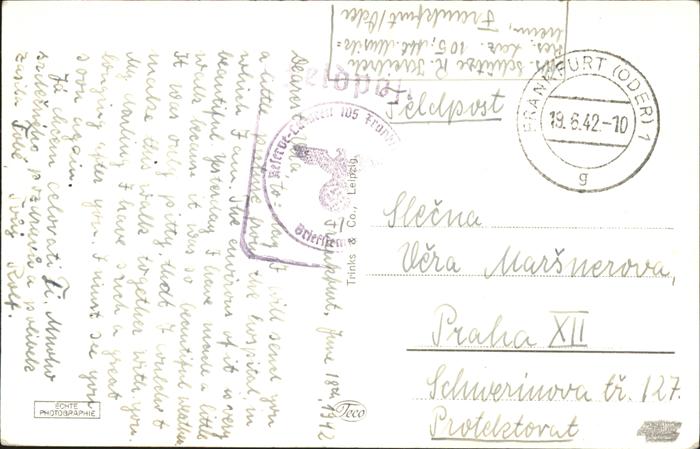 Schütze R.
Res. Laz. 105,
Frankfurt/Oder
Feldpost
Feldpost
FRANKFURT (ODER) 1
19.6.42.-10
g
Reserve-Lazarett 105
Briefstem
Slečna
Věra Maršnerova,
Praha XII
Schwerinova tř. 127.
Protektorat
Trinks & Co., Leipzig
Teco
ECHTE
PHOTOGRAPHIE
Frankfurt, June 18th, 1942
Dearest Věra,
to-day I will send you
a little picture from the hospital, in
which I am. The environs of it is very
beautiful. Yesterday I have made a little
walk because it was so beautiful weather.
It was only pitty, that I couldn't
make this walk together with you.
My darling, I have such a great
longing after you. I must see you
soon again.
Já chcem celovati Ti. Mnoho
srdečného pozdravů a polibek
zasílá Tobě Tvůj Rolf.